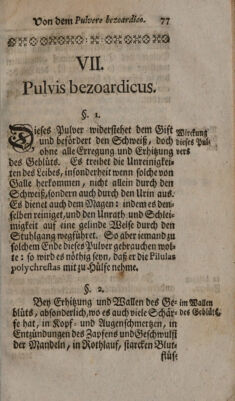 Von dem Pulvere bezoardico. 77
VII.
Pulvis bezoardicus.
§. 1.
Dieses Pulver widerstehet dem Gift
und befördert den Schweiß, doch
ohne alle Erregung und Erhitzung
des Geblüts. Es treibet die Unreinigkei-
ten des Leibes, insonderheit wenn solche von
Galle herkommen, nicht allein durch den
Schweiß, sondern auch durch den Urin aus.
Es dienet auch dem Magen: indem es den-
selben reiniget, und den Unrath und Schlei-
migkeit auf eine gelinde Weise durch den
Stuhlgang wegführet. So aber iemand zu
solchem Ende dieses Pulver gebrauchen wol-
te: so wird es nöthig seyn, daß er die Pilulas
polychrestas mit zu Hülfe nehme.
Wirckung
dieses Pul-
vers
§. 2.
Bey Erhitzung und Wallen des Ge-
blüts, absonderlich, wo es auch viele Schär-
fe hat, in Kopf- und Augenschmertzen, in
Entzündungen des Zapfens und Geschwulst
der Mandeln, in Rothlauf, starcken Blut-
flüsse
im Wallen
des Geblüts,